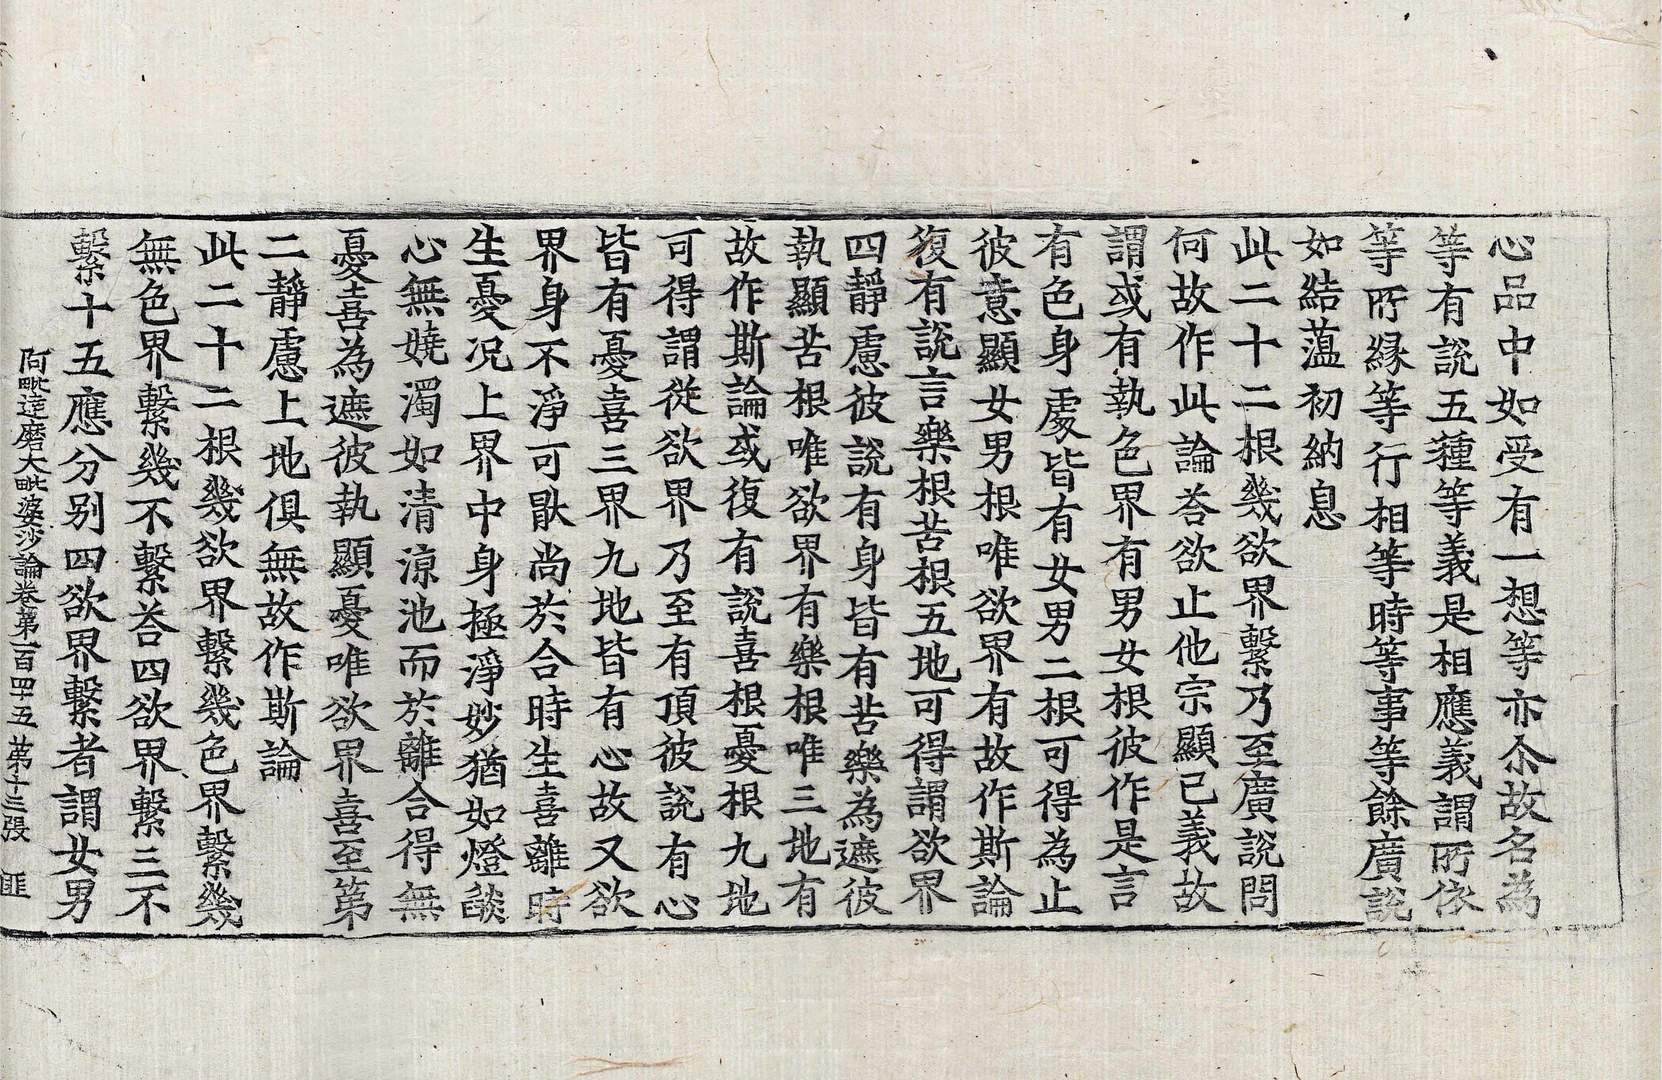 心品中如受有一想等亦尒故名為
等有說五種等義是相應義謂所依
等所緣等行相等時等事等餘廣說
如結蕰初納息
此二十二根幾欲界繫乃至廣說問
何故作此論荅欲止他宗顯已義故
謂或有執色界有男女根彼作是言
有色身處皆有女男二根可得為止
彼意顯女男根唯欲界有故作斯論
復有說言樂根苦根五地可得謂欲界
四靜慮彼說有身皆有苦樂為遮彼
執顯苦根唯欲界有樂根唯三地有
故作斯論或復有說喜根憂根九地
可得謂從欲界乃至有頂彼說有心
皆有憂喜三界九地皆有心故又欲
界身不淨可猒尚於合時生喜離時
生憂况上界中身極淨妙猶如燈燄
心無嬈濁如清涼池而於離合得無
憂喜為遮彼執顯憂唯欲界喜至第
二靜慮上地俱無故作斯論
此二十二根幾欲界繫幾色界繫幾
無色界繫幾不繫荅四欲界繫三不
繫十五應分別四欲界繫者謂女男
阿毗達磨大毗婆沙論卷第一百四十五 第十三張 匪